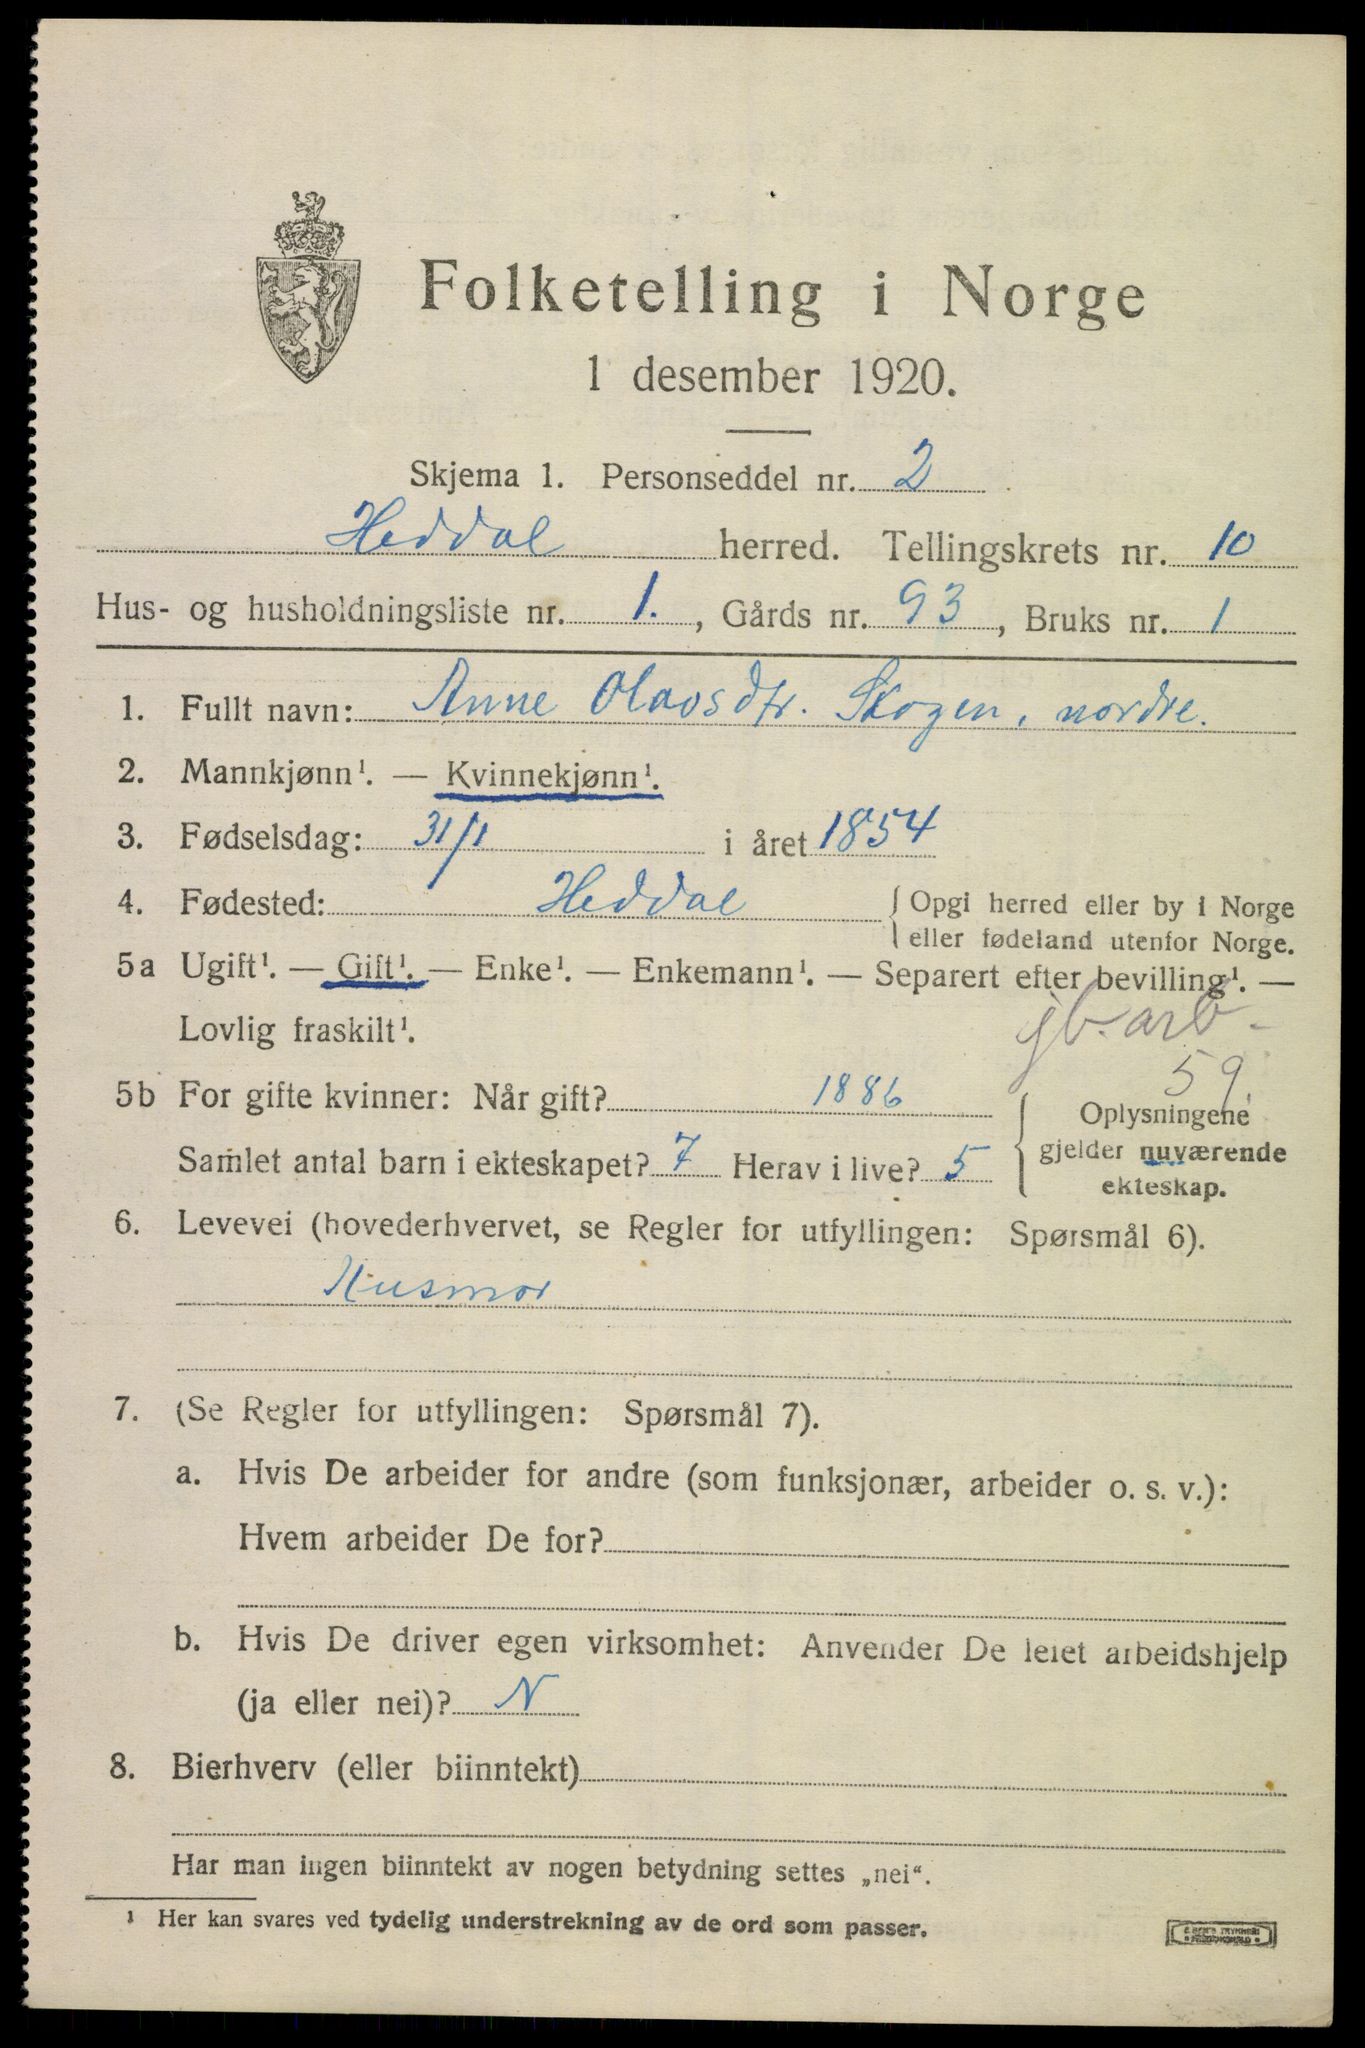 Folketelling i Norge
1 desember 1920.
Skjema 1. Personseddel nr. 2
Heddal herred. Tellingskrets nr. 10
Hus- og husholdningsliste nr. 1., Gårds nr. 93, Bruks nr. 1
1. Fullt navn: Anne Olavsdtr. Skogen, nordre.
2. Mannkjønn¹. — Kvinnekjønn¹.
3. Fødselsdag: 31/1 i året 1854
4. Fødested: Heddal { Opgi herred eller by i Norge
eller fødeland utenfor Norge.
5a Ugift¹. — Gift¹. — Enke¹. — Enkemann¹. — Separert efter bevilling¹. —
Lovlig fraskilt¹.
jb. arb.
59
5b For gifte kvinner: Når gift? 1886
Samlet antal barn i ekteskapet? 7 Herav i live? 5
Oplysningene
gjelder nuværende
ekteskap.
6. Levevei (hovederhvervet, se Regler for utfyllingen: Spørsmål 6).
Husmor
7. (Se Regler for utfyllingen: Spørsmål 7).
a. Hvis De arbeider for andre (som funksjonær, arbeider o. s. v.):
Hvem arbeider De for?
b. Hvis De driver egen virksomhet: Anvender De leiet arbeidshjelp
(ja eller nei)? N
8. Bierhverv (eller biinntekt)
Har man ingen biinntekt av nogen betydning settes „nei“.
¹ Her kan svares ved tydelig understrekning av de ord som passer.